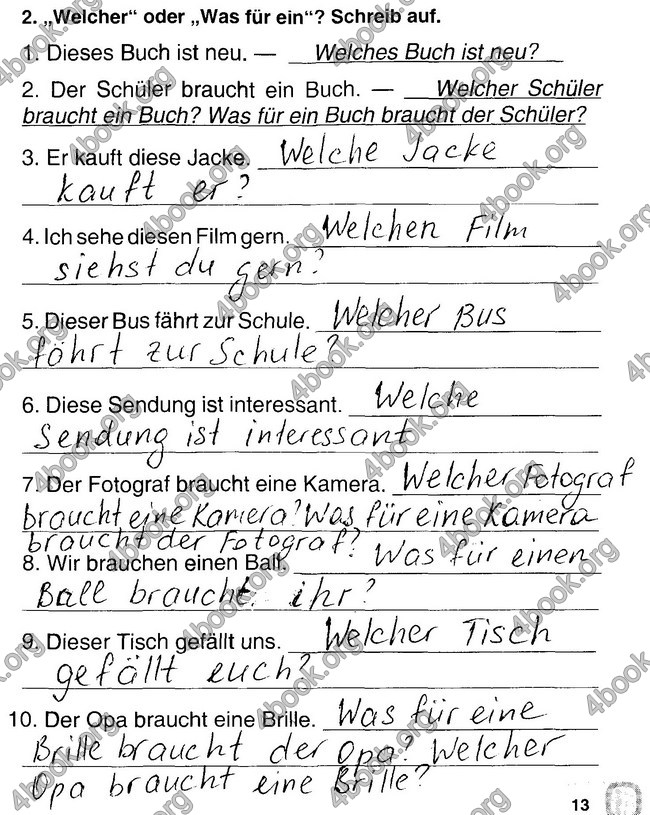 2. „Welcher“ oder „Was für ein“? Schreib auf.
1. Dieses Buch ist neu. — Welches Buch ist neu?
2. Der Schüler braucht ein Buch. — Welcher Schüler
braucht ein Buch? Was für ein Buch braucht der Schüler?
3. Er kauft diese Jacke. Welche Jacke
kauft er?
4. Ich sehe diesen Film gern. Welchen Film
siehst du gern?
5. Dieser Bus fährt zur Schule. Welcher Bus
föhrt zur Schule?
6. Diese Sendung ist interessant. Welche
Sendung ist interessant
7. Der Fotograf braucht eine Kamera. Welcher Fotograf
braucht eine Kamera? Was für eine Kamera
braucht der Fotograf?
8. Wir brauchen einen Ball. Was für einen
Ball braucht ihr?
9. Dieser Tisch gefällt uns. Welcher Tisch
gefällt euch?
10. Der Opa braucht eine Brille. Was für eine
Brille braucht der Opa? Welcher
Opa braucht eine Brille?
13
4book.org